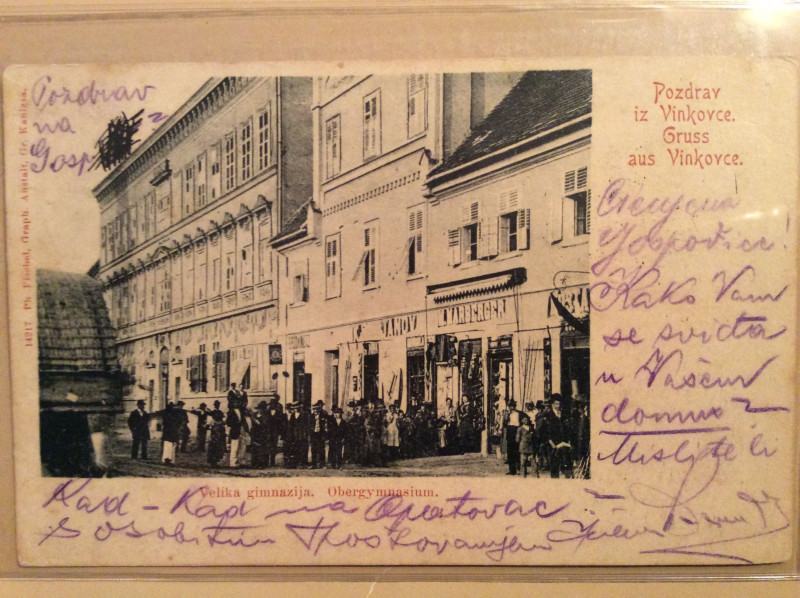 Pozdrav
na
Gosp
Pozdrav
iz Vinkovce.
Gruss
aus Vinkovce.
14217 Ph. Fischel, Graph. Anstalt, Gr. Kanizsa.
JANOV
MAMBERGER
Cienjena
Gospodjice!
Kako Vam
se svidja
u Vašem
domu?
Mislite li
Velika gimnazija. Obergymnasium.
Kad-Kad na Opatovac?
S osobitim štovanjem